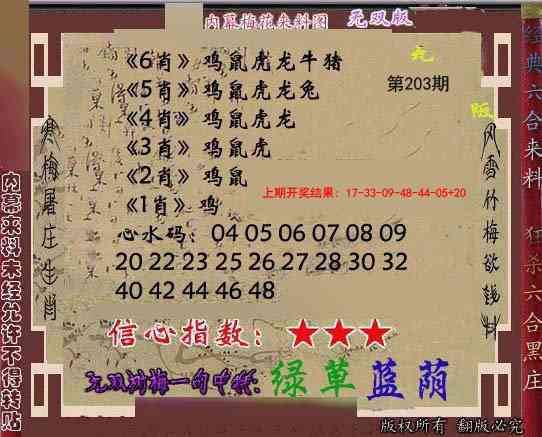 内幕梅花来料图 无双版
九
阪
第203期
《6肖》鸡鼠虎龙牛猪
《5肖》鸡鼠虎龙兔
《4肖》鸡鼠虎龙
《3肖》鸡鼠虎
《2肖》鸡鼠
《1肖》鸡
上期开奖结果：17-33-09-48-44-05+20
心水码：04 05 06 07 08 09
20 22 23 25 26 27 28 30 32
40 42 44 46 48
信心指数：★★★
绿草蓝荫
版权所有 翻版必究
寒梅屠庄生肖
风雪竹梅欲钱料
内幕来料未经允许不得转贴
经典六合来料 狂杀六合黑庄